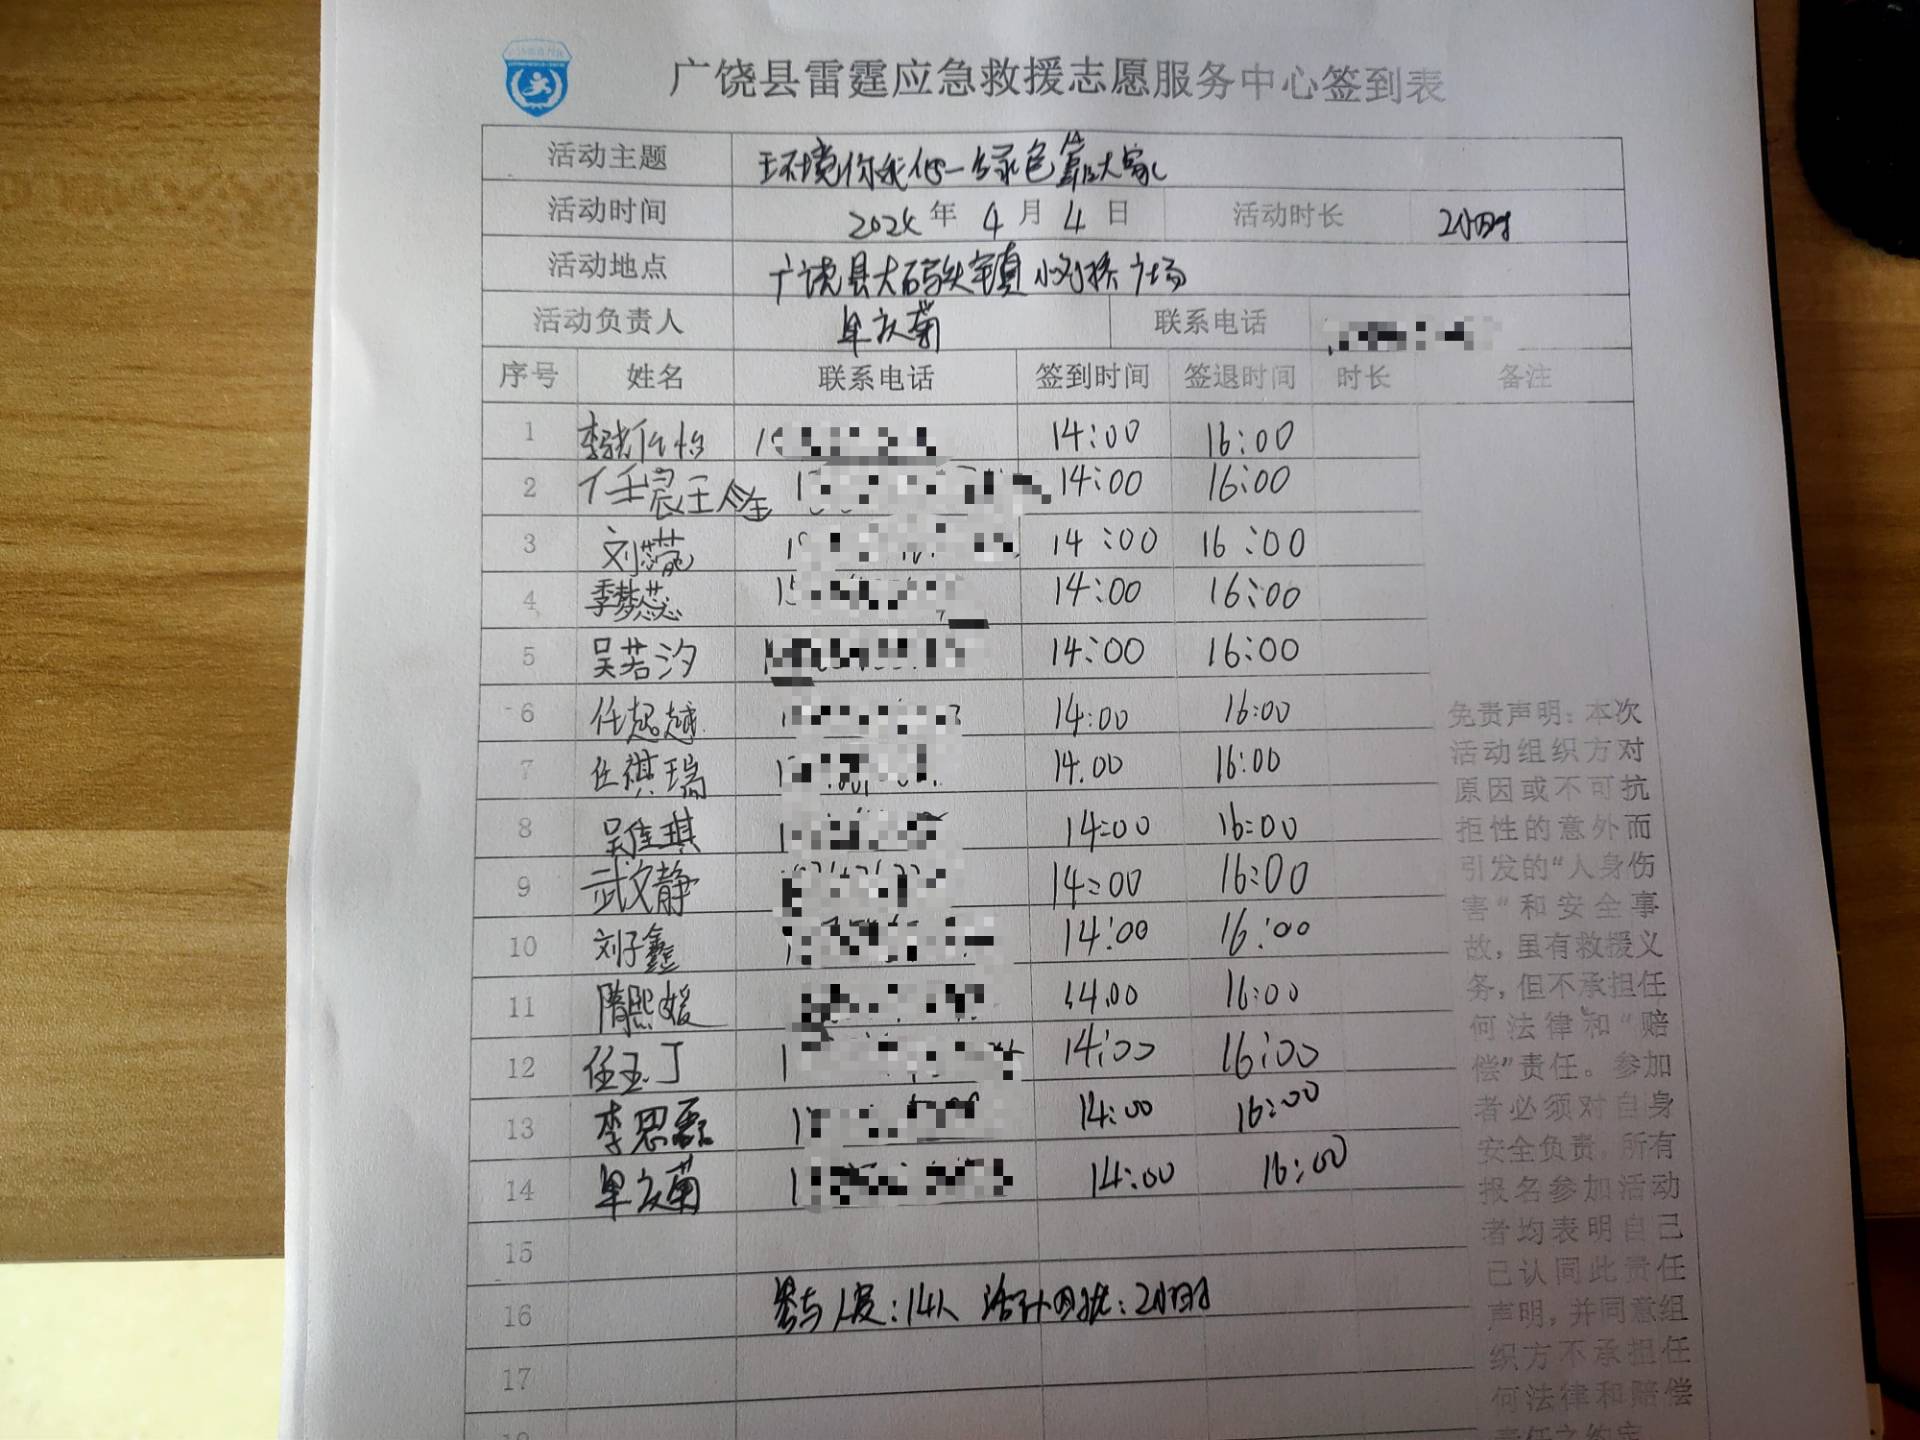 广饶县雷霆应急救援志愿服务中心签到表
活动主题 环境你我他 绿色靠大家
活动时间 2024年4月4日 活动时长 2小时
活动地点 广饶县大码头镇 小刘桥广场
活动负责人 联系电话
序号 姓名 联系电话 签到时间 签退时间 时长 备注
1 14:00 16:00
2 14:00 16:00
3 刘 14:00 16:00
4 季梦蕊 14:00 16:00
5 吴若汐 14:00 16:00
6 任超越 14:00 16:00
7 任祺瑞 14.00 16:00
8 吴佳琪 14:00 16:00
9 武文静 14:00 16:00
10 刘子鑫 14:00 16:00
11 隋熙媛 14.00 16:00
12 任玉丁 14:00 16:00
13 李思磊 14:00 16:00
14 14:00 16:00
15
16 参与人度:14人 活动时长:2小时
17
免责声明:本次
活动组织方对
原因或不可抗
拒性的意外而
引发的“人身伤
害”和安全事
故,虽有救援义
务,但不承担任
何法律和“赔
偿”责任。参加
者必须对自身
安全负责,所有
报名参加活动
者均表明自己
已认同此责任
声明,并同意组
织方不承担任
何法律和赔偿
责任之约定